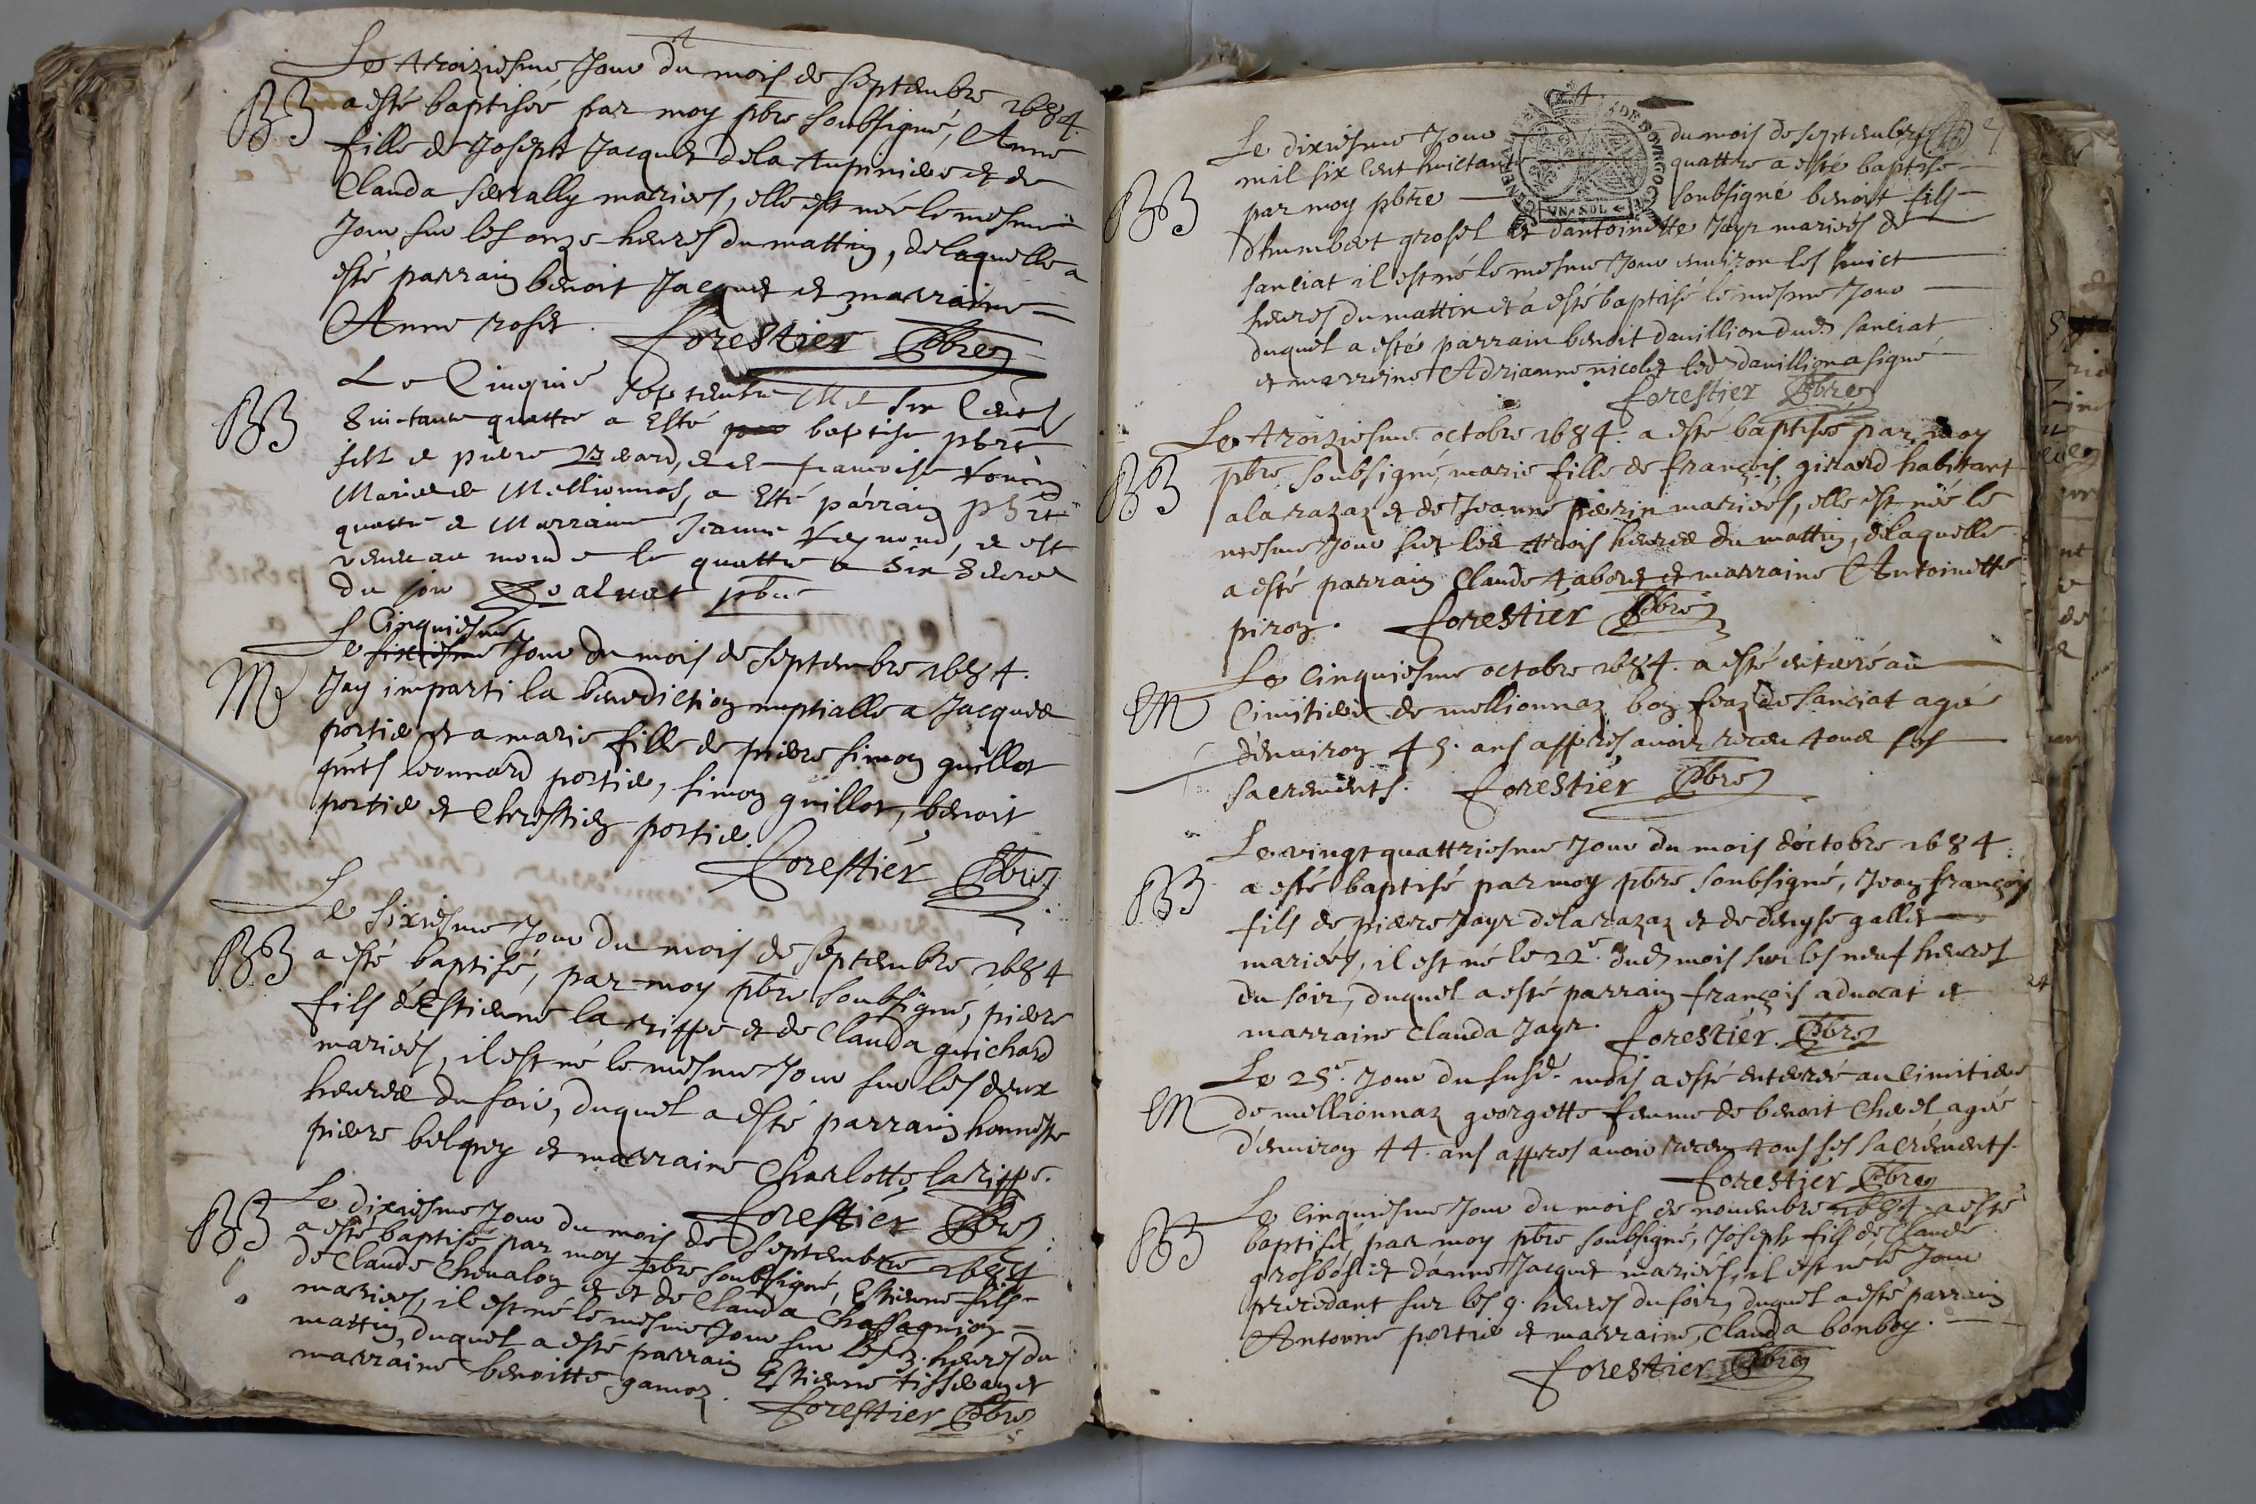 Le troiziesme Jour du mois de septembre 1684.
B a esté baptisée par moy pbre soubsigné, Anne
fille de Joseph Jacquet de la tupiniere et de
Clauda serrally mariés, elle est née le mesme
Jour sur les onze heures du mattin, de laquelle a
esté parrain benoit Jacquet et marraine
Anne roset. forestier pbre
Le Cinquie septembre Mil six Cent
B huictante quattre a Esté baptise phïe
fils de pierre Beard, et de francoise
Mariés de Mellionnas, a Esté parrain
quattre et Marraine Jeanne Reymond, et est
venu au monde le quattre a six heures
du soir pbre
Cinquiesme
Le sixiesme Jour du mois de septembre 1684.
M Jay imparti la benediction nuptialle a Jacques
portier et a marie fille de pierre simon guillot
pnts leonnard portier, simon guillot, benoit
portier et Chrestien portier.
forestier pbre
Le sixiesme Jour du mois de septembre 1684
B a esté baptisé, par moy pbre soubsigné, piere
fils d'Estienne la rippe et de Clauda guichard
mariés, il est né le mesme Jour sur les deux
heures du soir, duquel a esté parrain honneste
piere belguy et marraine Charlotte larippe.
forestier pbre
Le dixiesme Jour du mois de septembre 1684
B a esté baptisé par moy pbre soubsigné, Estienne fils
de Claude Chevalon et de Clauda Chassagnion
mariés, il est né le mesme Jour sur les 3. heures du
mattin, duquel a esté parrain Estienne tisserand et
marraine benoitte gamoz. forestier pbre
Le dixiesme Jour du mois de septembre
mil six cent huictante quattre a esté baptisé
B par moy pbre soubsigné benoit fils
GENERALITE DE BOURGOGNE
UN SOL
d'humbert grosel et d'antoinette Jayr mariés de
sanciat il est né le mesme Jour environ les huict
heures du mattin et a esté baptisé le mesme Jour
duquel a esté parrain benoit dauillion dud. sanciat
et marreine Adrianne nicolet led dauillion a signé
forestier pbre
Le troiziesme octobre 1684. a esté baptisée par moy
B pbre soubsigné, marie fille de françois girard habittant
a la razaz et de Jeanne pierin mariés, elle est née le
mesme Jour sur les trois heures du mattin, de laquelle
a esté parrain Claude taboret et marraine Antoinette
piron. forestier pbre
Le cinquiesme octobre 1684. a esté enterré au
M Cimitiere de mellionnaz boy feaz de sanciat agée
d'environ 45. ans appres avoir receu tous ses
sacrements. forestier pbre
Le vingt quattriesme Jour du mois d'octobre 1684.
B a esté baptisé par moy pbre soubsigné, Jean françois
fils de piere Jayr de la razaz et de denyse gallet
mariés, il est né le 22e. dud. mois sur les neuf heures
du soir, duquel a esté parrain françois advocat et
marraine Clauda Jayr. forestier pbre
Le 25e. Jour du susd. mois a esté enterrée au Cimitiere
M de mellionnaz georgette femme de benoit Chevel agée
d'environ 44. ans appres avoir receu tous ses sacrements.
forestier pbre
Le cinquiesme Jour du mois de novembre 1684. a esté
B baptisé par moy pbre soubsigné, Joseph fils de Claude
grosbost et d'anne Jacquet mariés, il est né le Jour
precedant sur les 9. heures du soir, duquel a esté parrain
Antoine portier et marraine Clauda bonboy.
forestier pbre